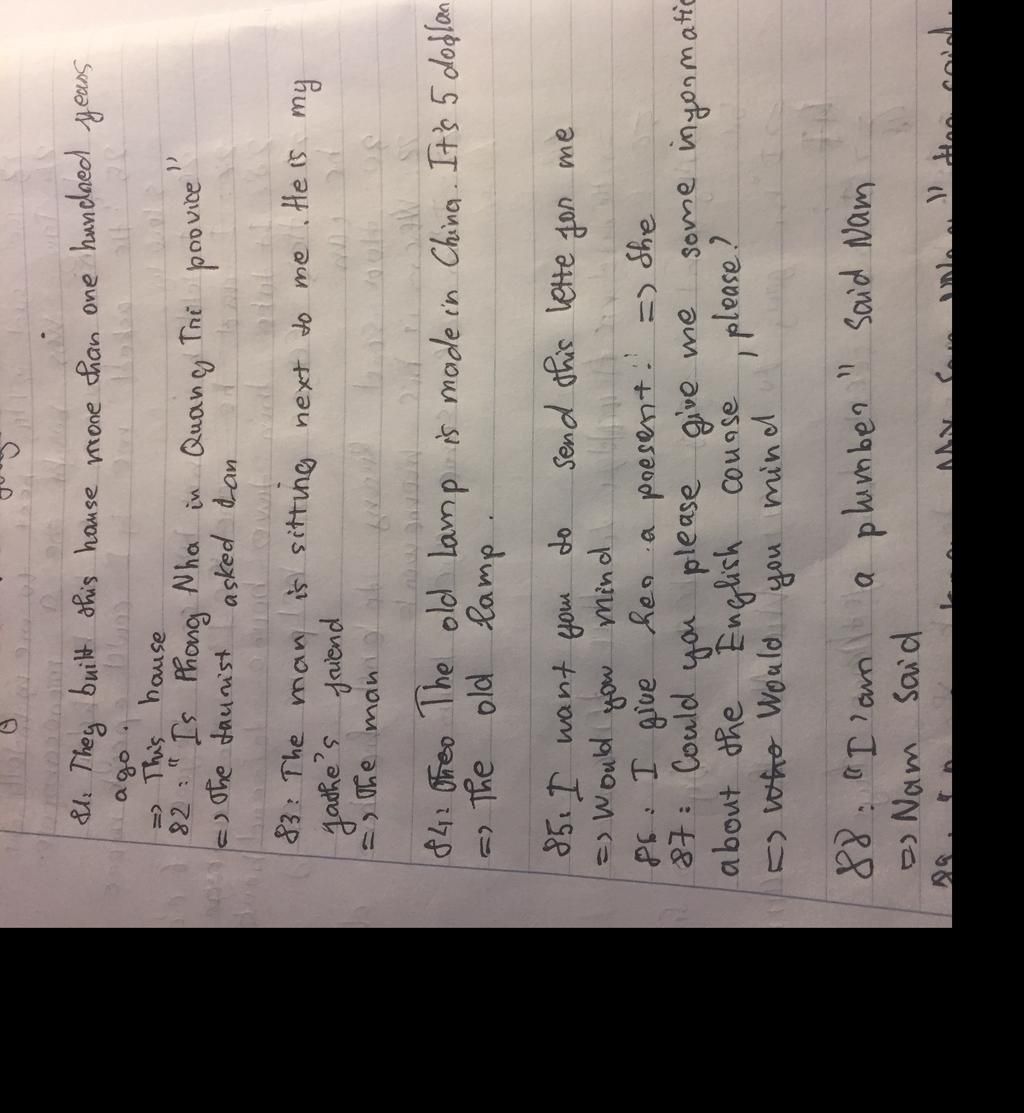 81: They built this house more than one hundred years
ago.
=> This house
82: "Is Phong Nha in Quang Tri povice"
=> The tourist asked Lan
83: The man is sitting next to me. He is my
fathe's friend
=> The man
84: Theo The old lamp is made in China. It's 5 dollar
=> The old lamp.
85: I want you to send this lette for me
=> Would you mind
86: I give her a present. => She
87: Could you please give me some informatio
about the English course, please?
=> Who Would you mind
88: "I'am a plumber" said Nam
=> Nam said
89: